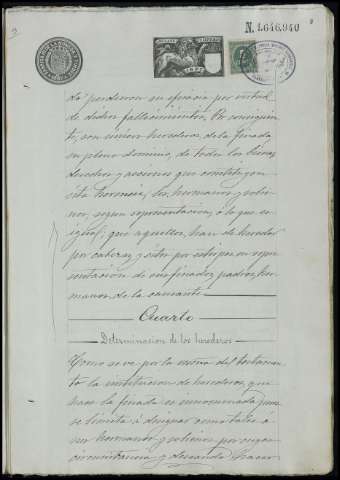 N. 1.646.940
da perdieron su eficacia por virtud
de dichos fallecimientos. Por consiguien-
te, son únicos herederos de la finada
en pleno dominio, de todos los bienes
derechos y acciones que constituyen
esta herencia, los hermanos y sobri-
nos, según representación, ó lo que es
igual; que aquellos, han de heredar
por cabezas y estos por estirpes en repre-
sentación de sus finados padres her-
manos de la causante
Cuarto
Determinación de los herederos
Como se ve por la reseña del testamen-
to la institución de herederos, que
hace la finada es innominada, pues
se limita á designar como tales á
sus hermanos y sobrinos por cuya
circunstancia y deseando hacer